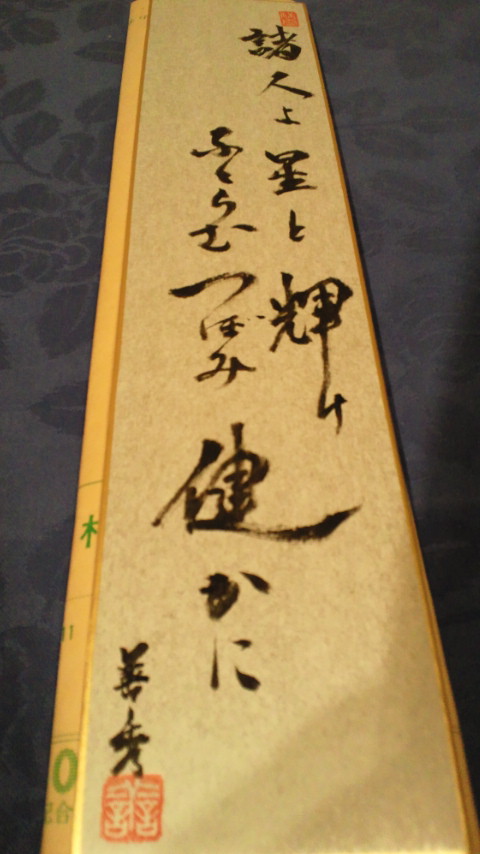 諸人よ星と輝け
ふくらむつぼみ健かに
善秀